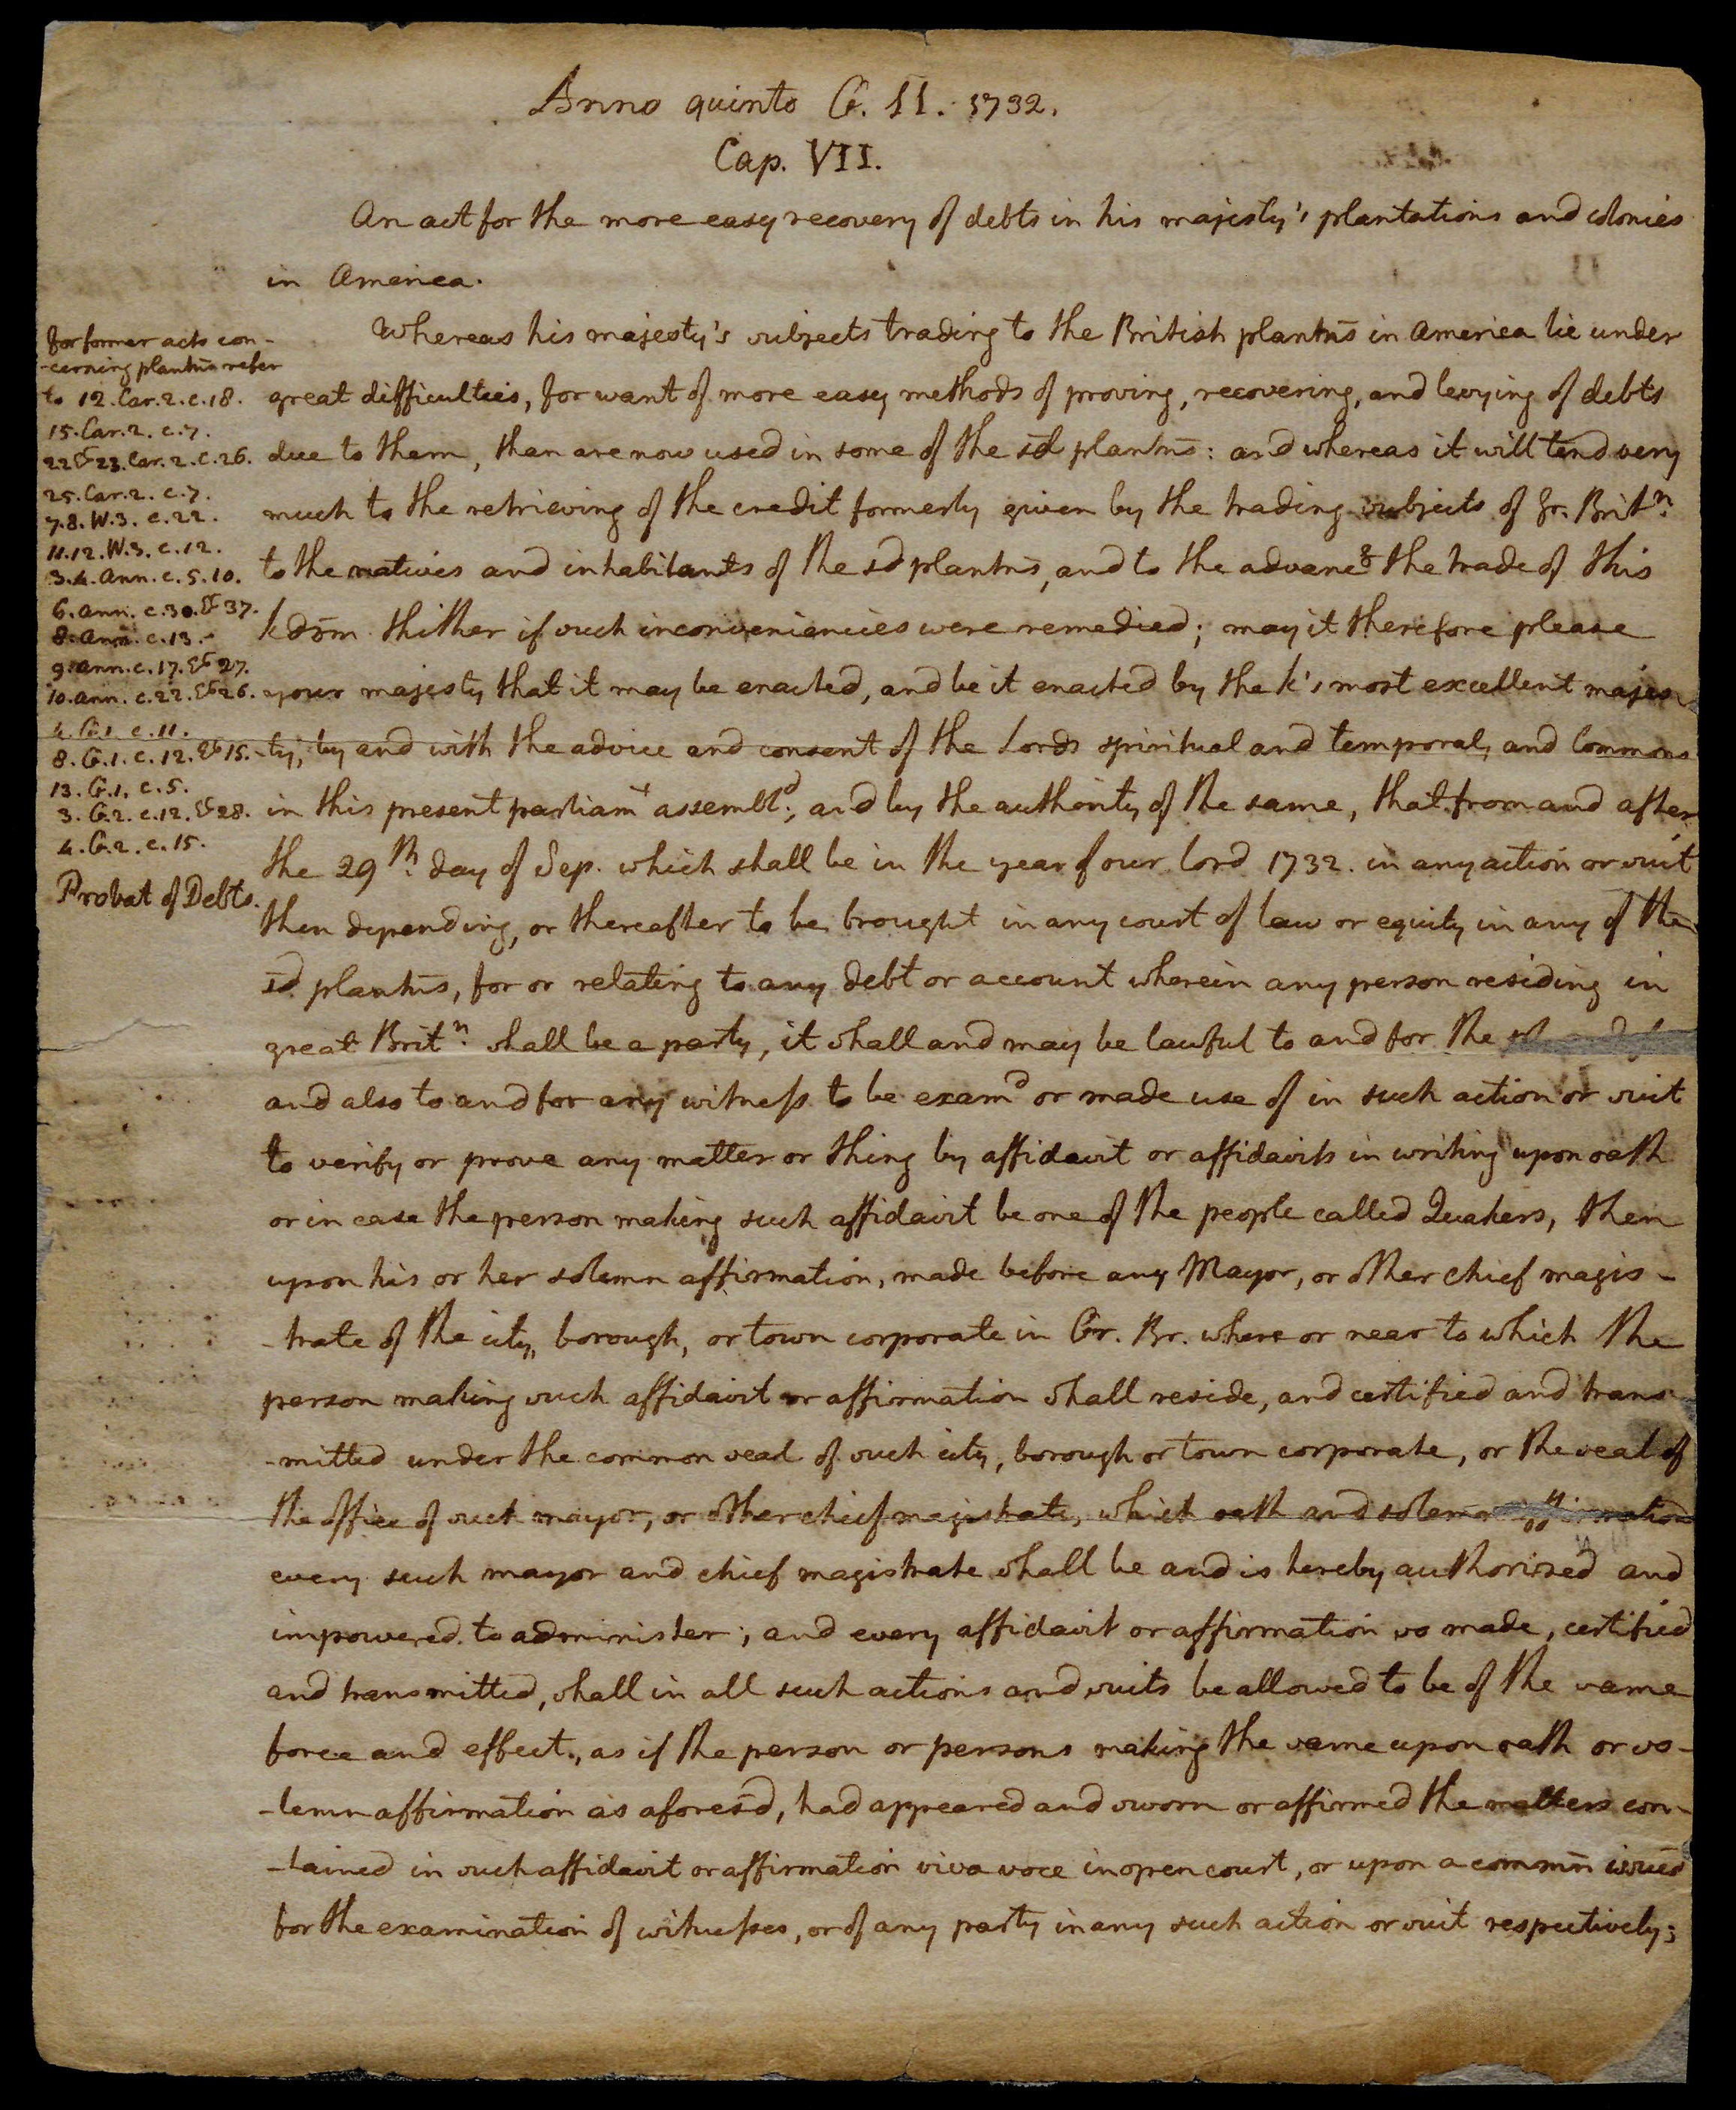 Anno quinto G. II. 1732.
Cap. VII.
An act for the more easy recovery of debts in his majesty's plantations and colonies
in America.
for former acts con-
-cerning plantns refer
to 12. Car. 2. c. 18.
15. Car. 2. c. 7.
22 & 23. Car. 2. c. 26.
25. Car. 2. c. 7.
7. 8. W. 3. c. 22.
11. 12. W. 3. c. 12.
3. 4. Ann. c. 5. 10.
6. Ann. c. 30. & 37.
8. Ann. c. 13.
9. Ann. c. 17. & 27.
10. Ann. c. 22. & 26.
4. G. 1. c. 11.
8. G. 1. c. 12. & 15.
13. G. 1. c. 5.
3. G. 2. c. 12. & 28.
4. G. 2. c. 15.
Probat of Debts.
Whereas his majesty's subjects trading to the British plantns in America lie under
great difficulties, for want of more easy methods of proving, recovering, and levying of debts
due to them, than are now used in some of the sd plantns: and whereas it will tend very
much to the retrieving of the credit formerly given by the trading subjects of Gr. Britn.
to the natives and inhabitants of the sd plantns, and to the advanc'g the trade of this
kdom thither if such inconveniencies were remedied; may it therefore please
your majesty that it may be enacted, and be it enacted by the k's most excellent majes-
-ty, by and with the advice and consent of the Lords spiritual and temporal, and Commons
in this present parliamt assembld; and by the authority of the same, that from and after
the 29th. day of Sep. which shall be in the year of our lord 1732. in any action or suit
then depending, or thereafter to be brought in any court of law or equity in any of the
sd plantns, for or relating to any debt or account wherein any person residing in
great Britn. shall be a party, it shall and may be lawful to and for the
and also to and for any witness to be examd or made use of in such action or suit
to verify or prove any matter or thing by affidavit or affidavits in writing upon oath
or in case the person making such affidavit be one of the people called Quakers, then
upon his or her solemn affirmation, made before any Mayor, or other chief magis-
-trate of the city, borough, or town corporate in Gr. Br. where or near to which the
person making such affidavit or affirmation shall reside, and certified and trans-
-mitted under the common seal of such city, borough or town corporate, or the seal of
the office of such mayor, or other chief magistrate, which oath and solemn affirmation
every such mayor and chief magistrate shall be and is hereby authorised and
impowered to administer; and every affidavit or affirmation so made, certified
and transmitted, shall in all such actions and suits be allowed to be of the same
force and effect, as if the person or persons making the same upon oath or so-
-lemn affirmation as aforesd, had appeared and sworn or affirmed the matters con-
-tained in such affidavit or affirmation viva voce in open court, or upon a commn issued
for the examination of witnesses, or of any party in any such action or suit respectively;